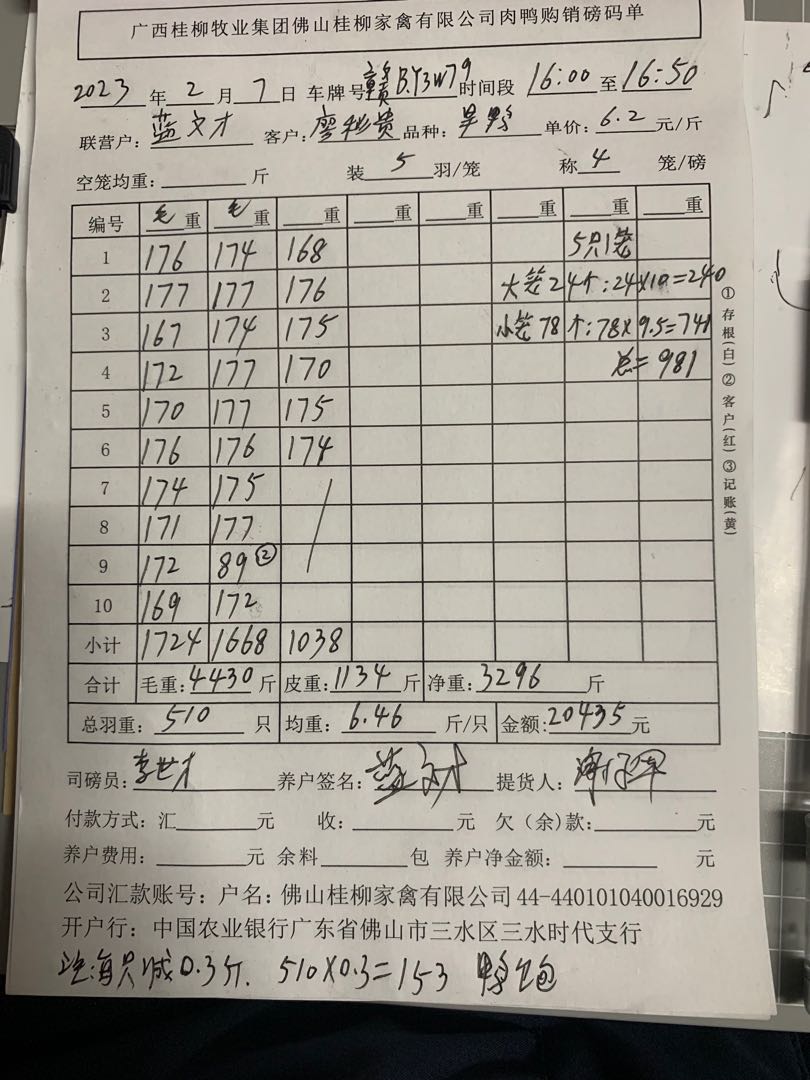 广西桂柳牧业集团佛山桂柳家禽有限公司肉鸭购销磅码单
2023 年 2 月 7 日 车牌号 赣B.Y3W79 时间段 16:00 至 16:50
联营户: 蓝文才 客户: 廖 贵 品种: 旱鸭 单价: 6.2 元/斤
空笼均重: 斤 装 5 羽/笼 称 4 笼/磅
编号 毛重 毛重 重 重 重 重 重 重
1 176 174 168 5只1笼
2 177 177 176 大笼24个:24×10=240
3 167 174 175 小笼78个:78×9.5=741
4 172 177 170 总=981
5 170 177 175
6 176 176 174
7 174 175
8 171 177
9 172 89②
10 169 172
小计 1724 1668 1038
合计 毛重: 4430 斤 皮重: 1134 斤 净重: 3296 斤
总羽重: 510 只 均重: 6.46 斤/只 金额: 20435 元
司磅员: 李世才 养户签名: 蓝文才 提货人:
付款方式: 汇 元 收: 元 欠(余)款: 元
养户费用: 元 余料 包 养户净金额: 元
公司汇款账号: 户名: 佛山桂柳家禽有限公司 44-440101040016929
开户行: 中国农业银行广东省佛山市三水区三水时代支行
注:每只减0.3斤. 510×0.3=153 鸭包
①存根(白)②客户(红)③记账(黄)